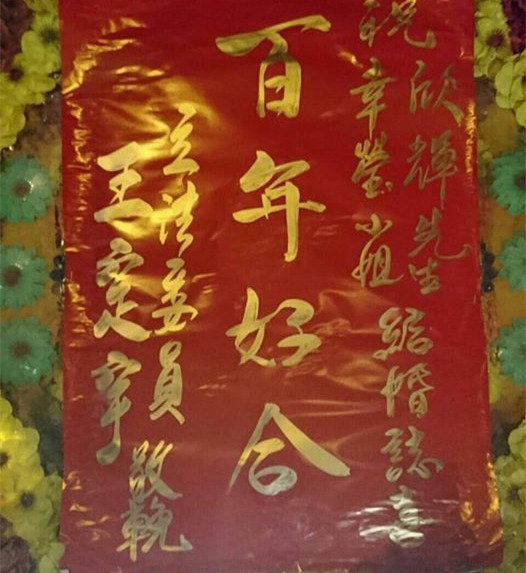 祝
欣輝先生
幸瑩小姐
結婚誌喜
百年好合
立法委員
王定宇
敬輓